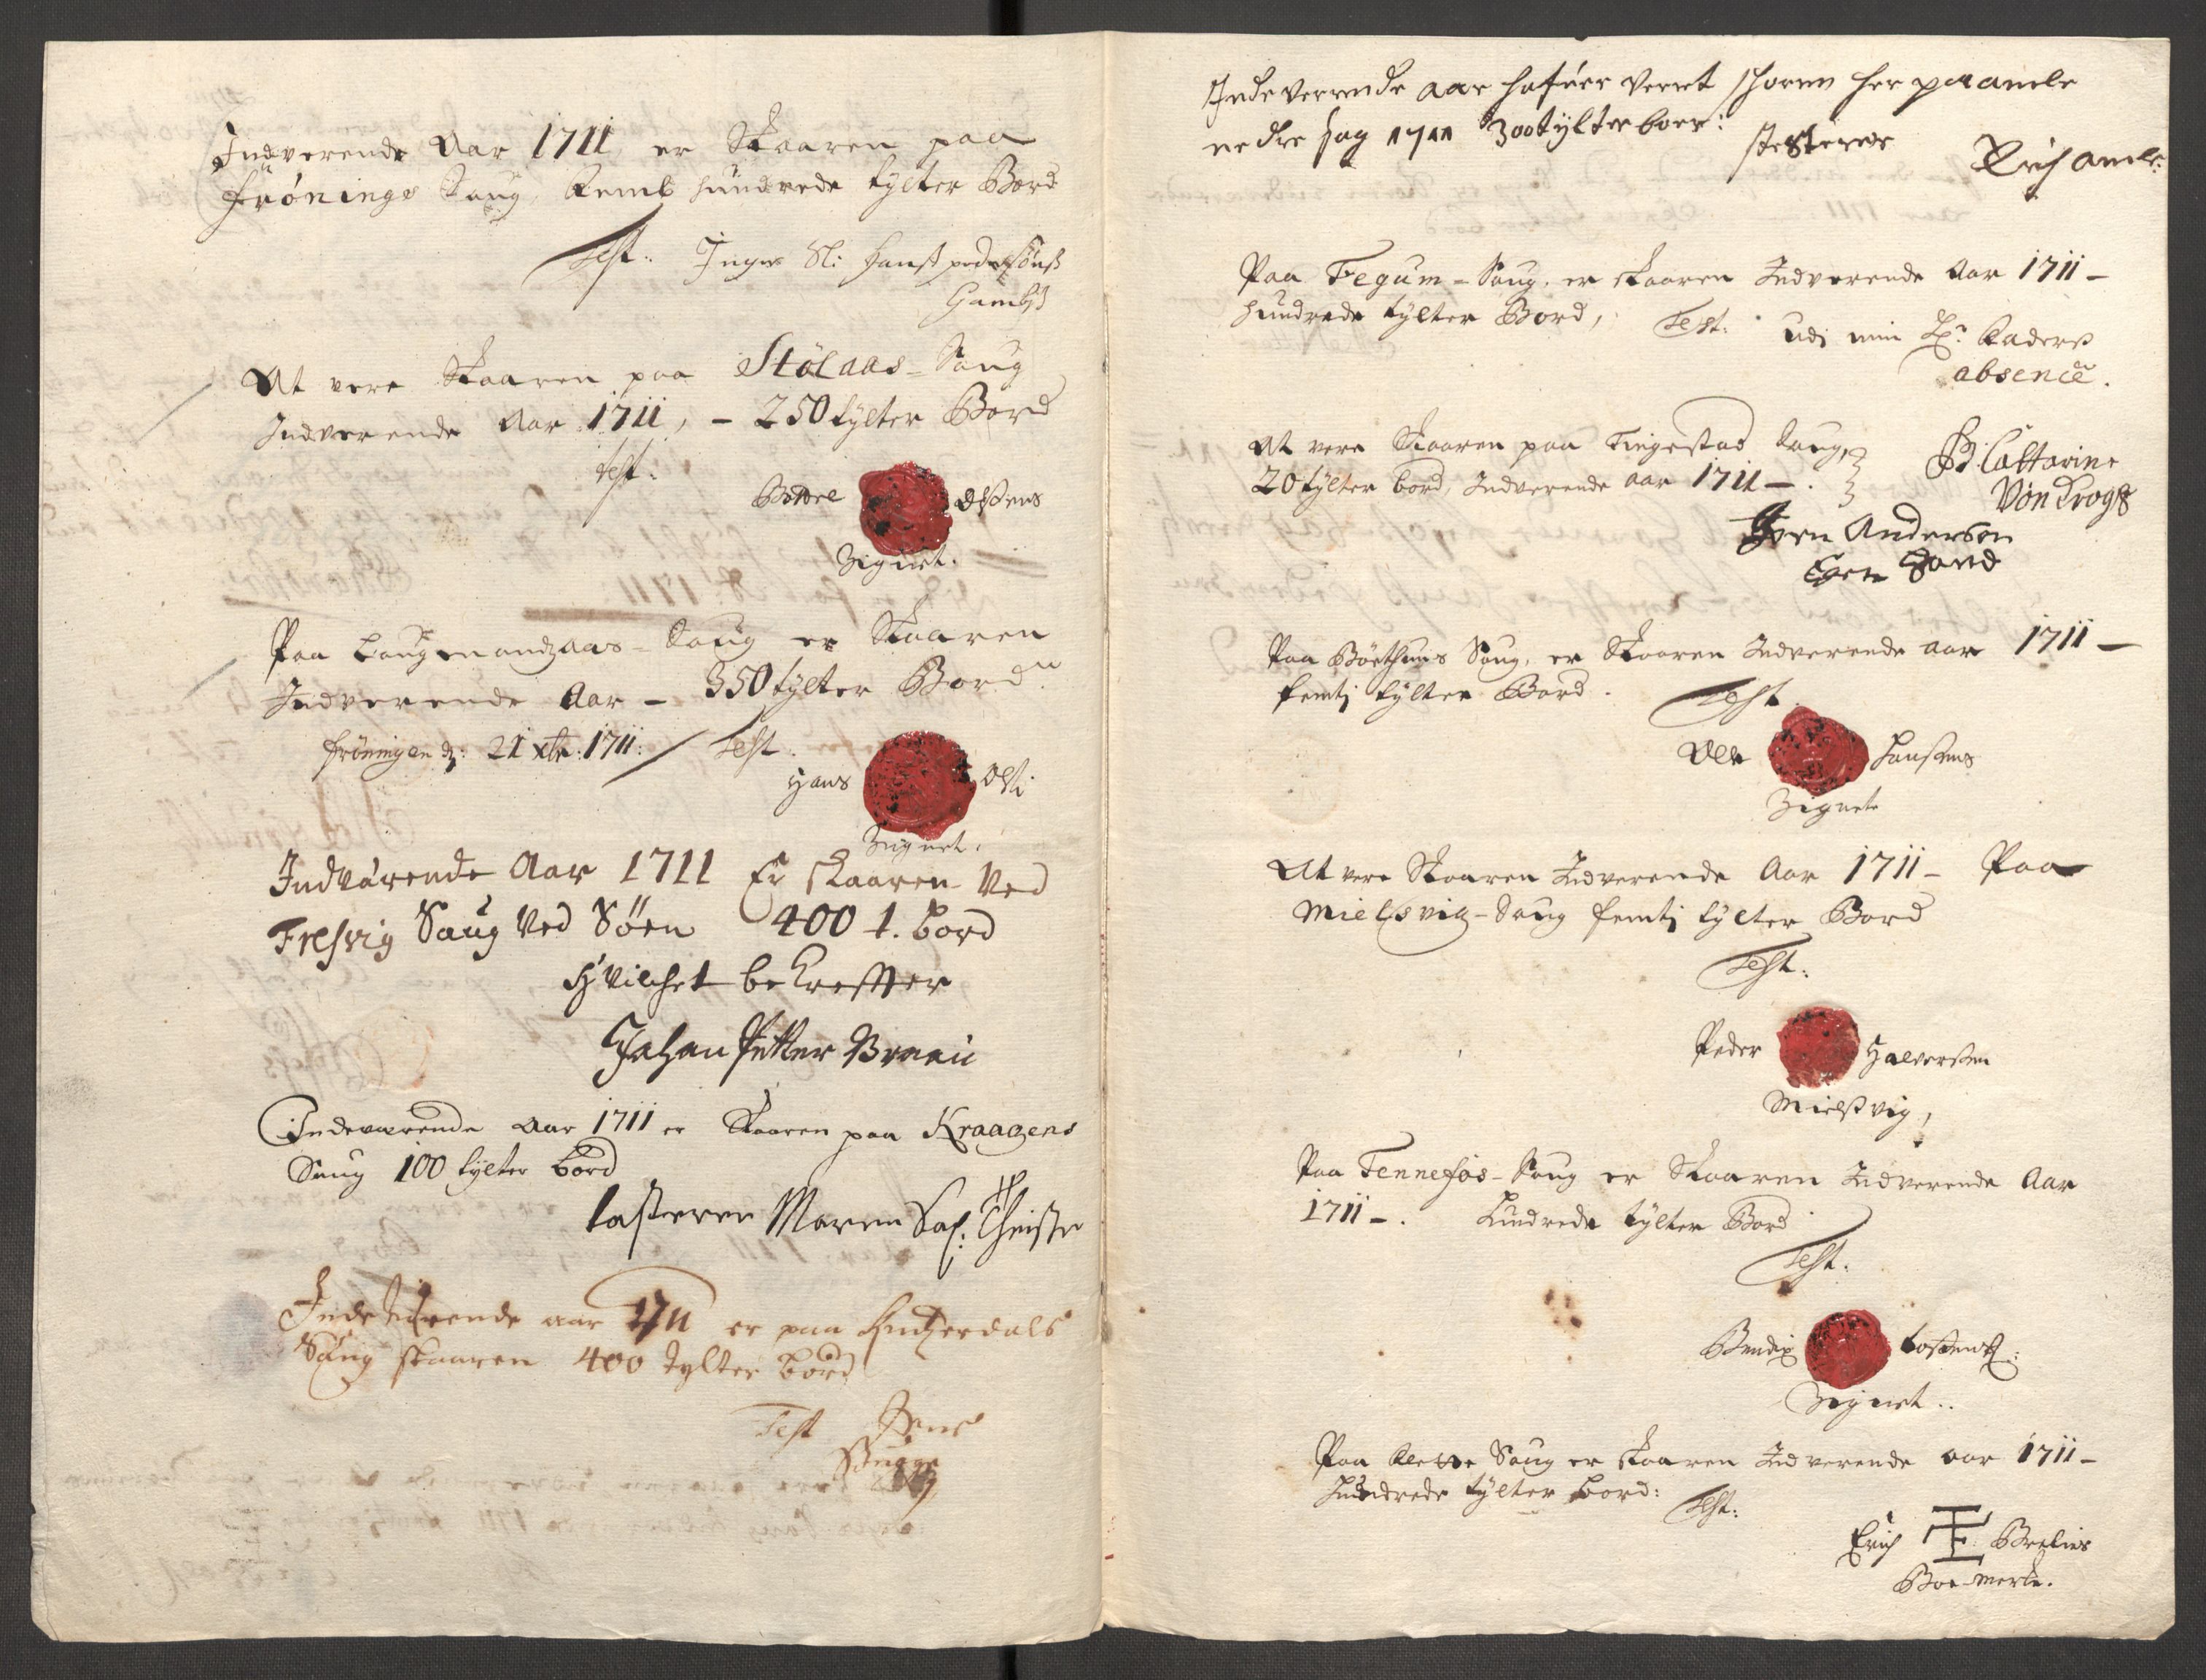 Indverende Aar 1711 er Skaaren paa
Frønings Saug, femb hundrede tylter Bord
Test. Inger Sl: Hanss pedersønss
At vere Skaaren paa Stølaas-Saug
Indverende Aar 1711, - 250 tylter Bord
test.
Bottel Olssens
Zignet.
Paa Laugmandzaas-Saug er Skaaren
Indverende Aar - 350 tylter Bord
Frøningen d: 21 xbr: 1711. Test.
Hans Olss:
Zignet.
Indværende Aar 1711 Er skaaren Ved
Fresvig Saug Ved Søen 400 t. bord
Hvilchet bekreffter
Johan Petter Braau
Indeværende Aar 1711 er Skaaren paa Kraagens
Saug 100 tylter bord
Testerer Maren Sal: Theiste
Indeværende aar 1711 er paa
Saug skaaren 400 tylter bord
Test Jens
Bugge
Indeverrende aar hafuer verret skoren her paa amle
nedre sag 1711 300 tylter boer:
testerer
Erich amle:
Paa Fegum-Saug. er skaaren Indverende Aar 1711 -
hundrede tylter Bord, Test: udi min Hr: Faders
absence.
At vere Skaaren paa Tingestad Saug,
20 tylter bord, Indverende aar 1711 -.
Cattarine
Von Krogh
Iven Anderson
Egen Hand
Paa Böethuns Saug, er Skaaren Indverende aar 1711 -
femti tylter Bord.
Test.
Ole Hanssens
Zignete
At vere Skaaren Indverende Aar 1711 - Paa
Mielsvig-Saug femti tylter Bord
Test.
Peder Halverssen
Mielssvig,
Paa Tennefos-Saug er Skaaren Indverende Aar
1711 -. Hundrede tylter Bord
Test.
Bendix
Zignet..
Paa Kleppe Saug er skaaren Indverende aar 1711 -
Hundrede tylter bord: Test:
Erich TE Brelies
Boe-Merke.